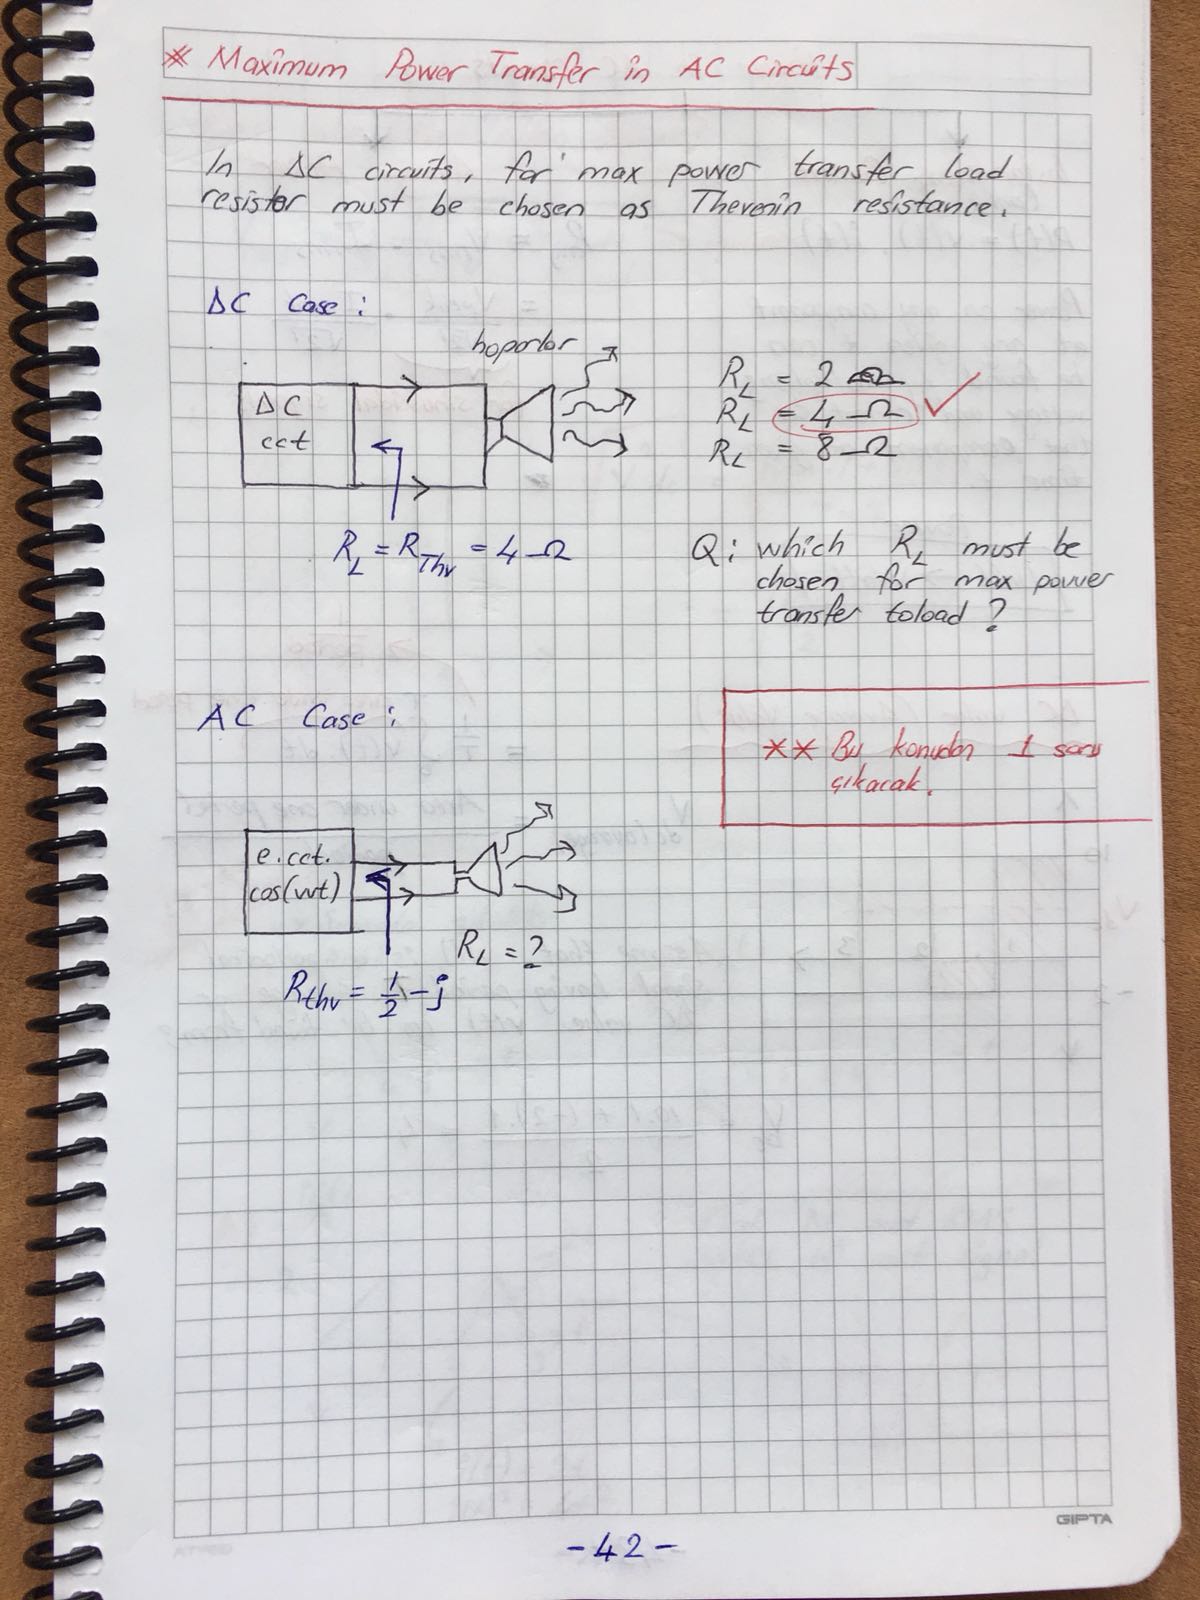 * Maximum Power Transfer in AC Circuits
In DC circuits, for max power transfer load
resistor must be chosen as Thevenin resistance.
DC Case:
hoparlor
DC
cct
R_L = 2 Ω
R_L = 4 Ω ✓
R_L = 8 Ω
R_L = R_Thv = 4 Ω
Q: which R_L must be
chosen for max power
transfer toload?
AC Case:
** Bu konudan 1 soru
çıkacak.
e.cct.
cos(wt)
R_L = ?
R_thv = 1/2 - j
GIPTA
-42-